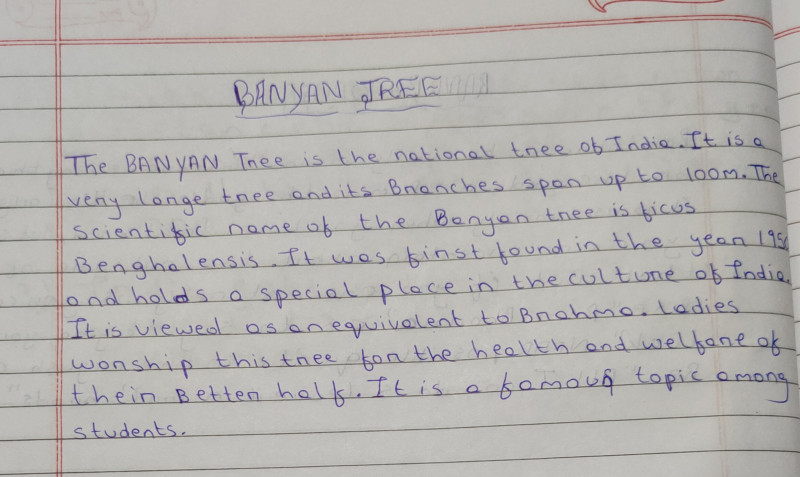 BANYAN TREE
The BANYAN Tree is the national tree of India. It is a
very large tree and its Branches span up to 100m. The
scientific name of the Banyan tree is ficus
Benghalensis. It was first found in the year 195
and holds a special place in the culture of India.
It is viewed as an equivalent to Brahma. Ladies
worship this tree for the health and welfare of
their Better half. It is a famous topic among
students.